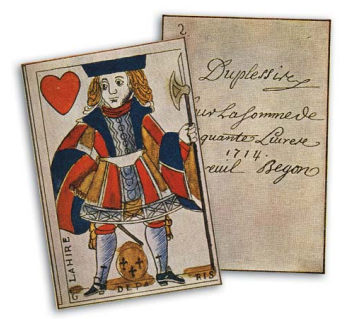 LAHIRE
DE PA RIS
2
Duplessis
sur La somme de
quante Livres
1714.
Begon